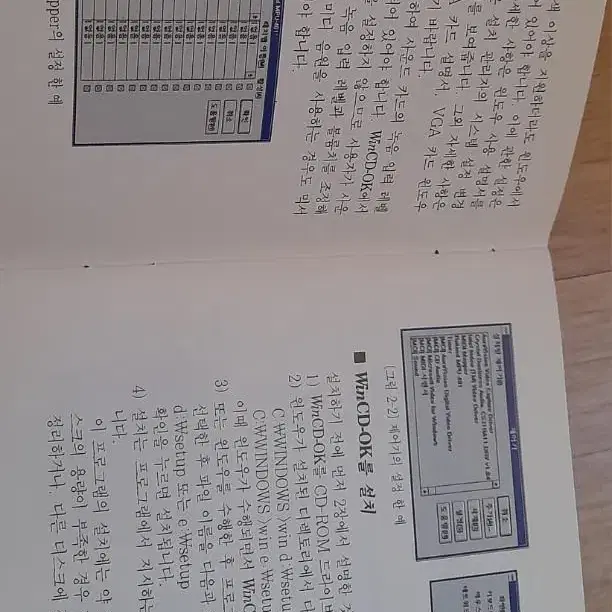 색 이상을 지원하더라도 윈도우에서
어 있어야 합니다. 이에 관한 설정은
세한 사항은 윈도우 사용 설명서를
설치 관리자의 시스템 설정 변경
를 보여줍니다. 그외 자세한 사항은
A 카드 설명서, VGA 카드 윈도우
기 바랍니다.
하여 사운드 카드의 녹음 입력 레벨
어 있어야 합니다. WinCD-OK에서
을 설정하지 않으므로 사용자가 사운
녹음 입력 레벨과 볼륨치를 조정해
미디 음원을 사용하는 경우도 믹서
야 합니다.
MPU-401
확인
취소
도움말(H)
pper의 설정 한 예
제어기
설치된 제어기들
AuraVision Video Capture Driver
MIDI Mapper
Roland MPU-401
Timer
[MCI] AuraVision Digital Video Driver
[MCI] CD Audio
[MCI] Microsoft Video for Windows
[MCI] MIDI 시퀀서
[MCI] Sound
취소
도움말(H)
(그림 2-2) 제어기의 설정 한 예
■ WinCD-OK를 설치
설치하기 전에 먼저 2장에서 설명한
1) WinCD-OK를 CD-ROM 드라이브
2) 윈도우가 설치된 디렉토리에서 다
C:₩WINDOWS 〉win d:₩setu
C:₩WINDOWS 〉win e:₩setu
이때 윈도우가 수행되면서 WinC
3) 또는 윈도우를 수행한 후 프로
선택한 후 파일 이름을 다음과
d:₩setup 또는 e:₩setup
확인을 누르면 설치됩니다.
4) 설치는 프로그램에서 지시하는
니다.
이 프로그램의 설치에는 약
스크의 용량이 부족한 경우
정리하거나, 다른 디스크에